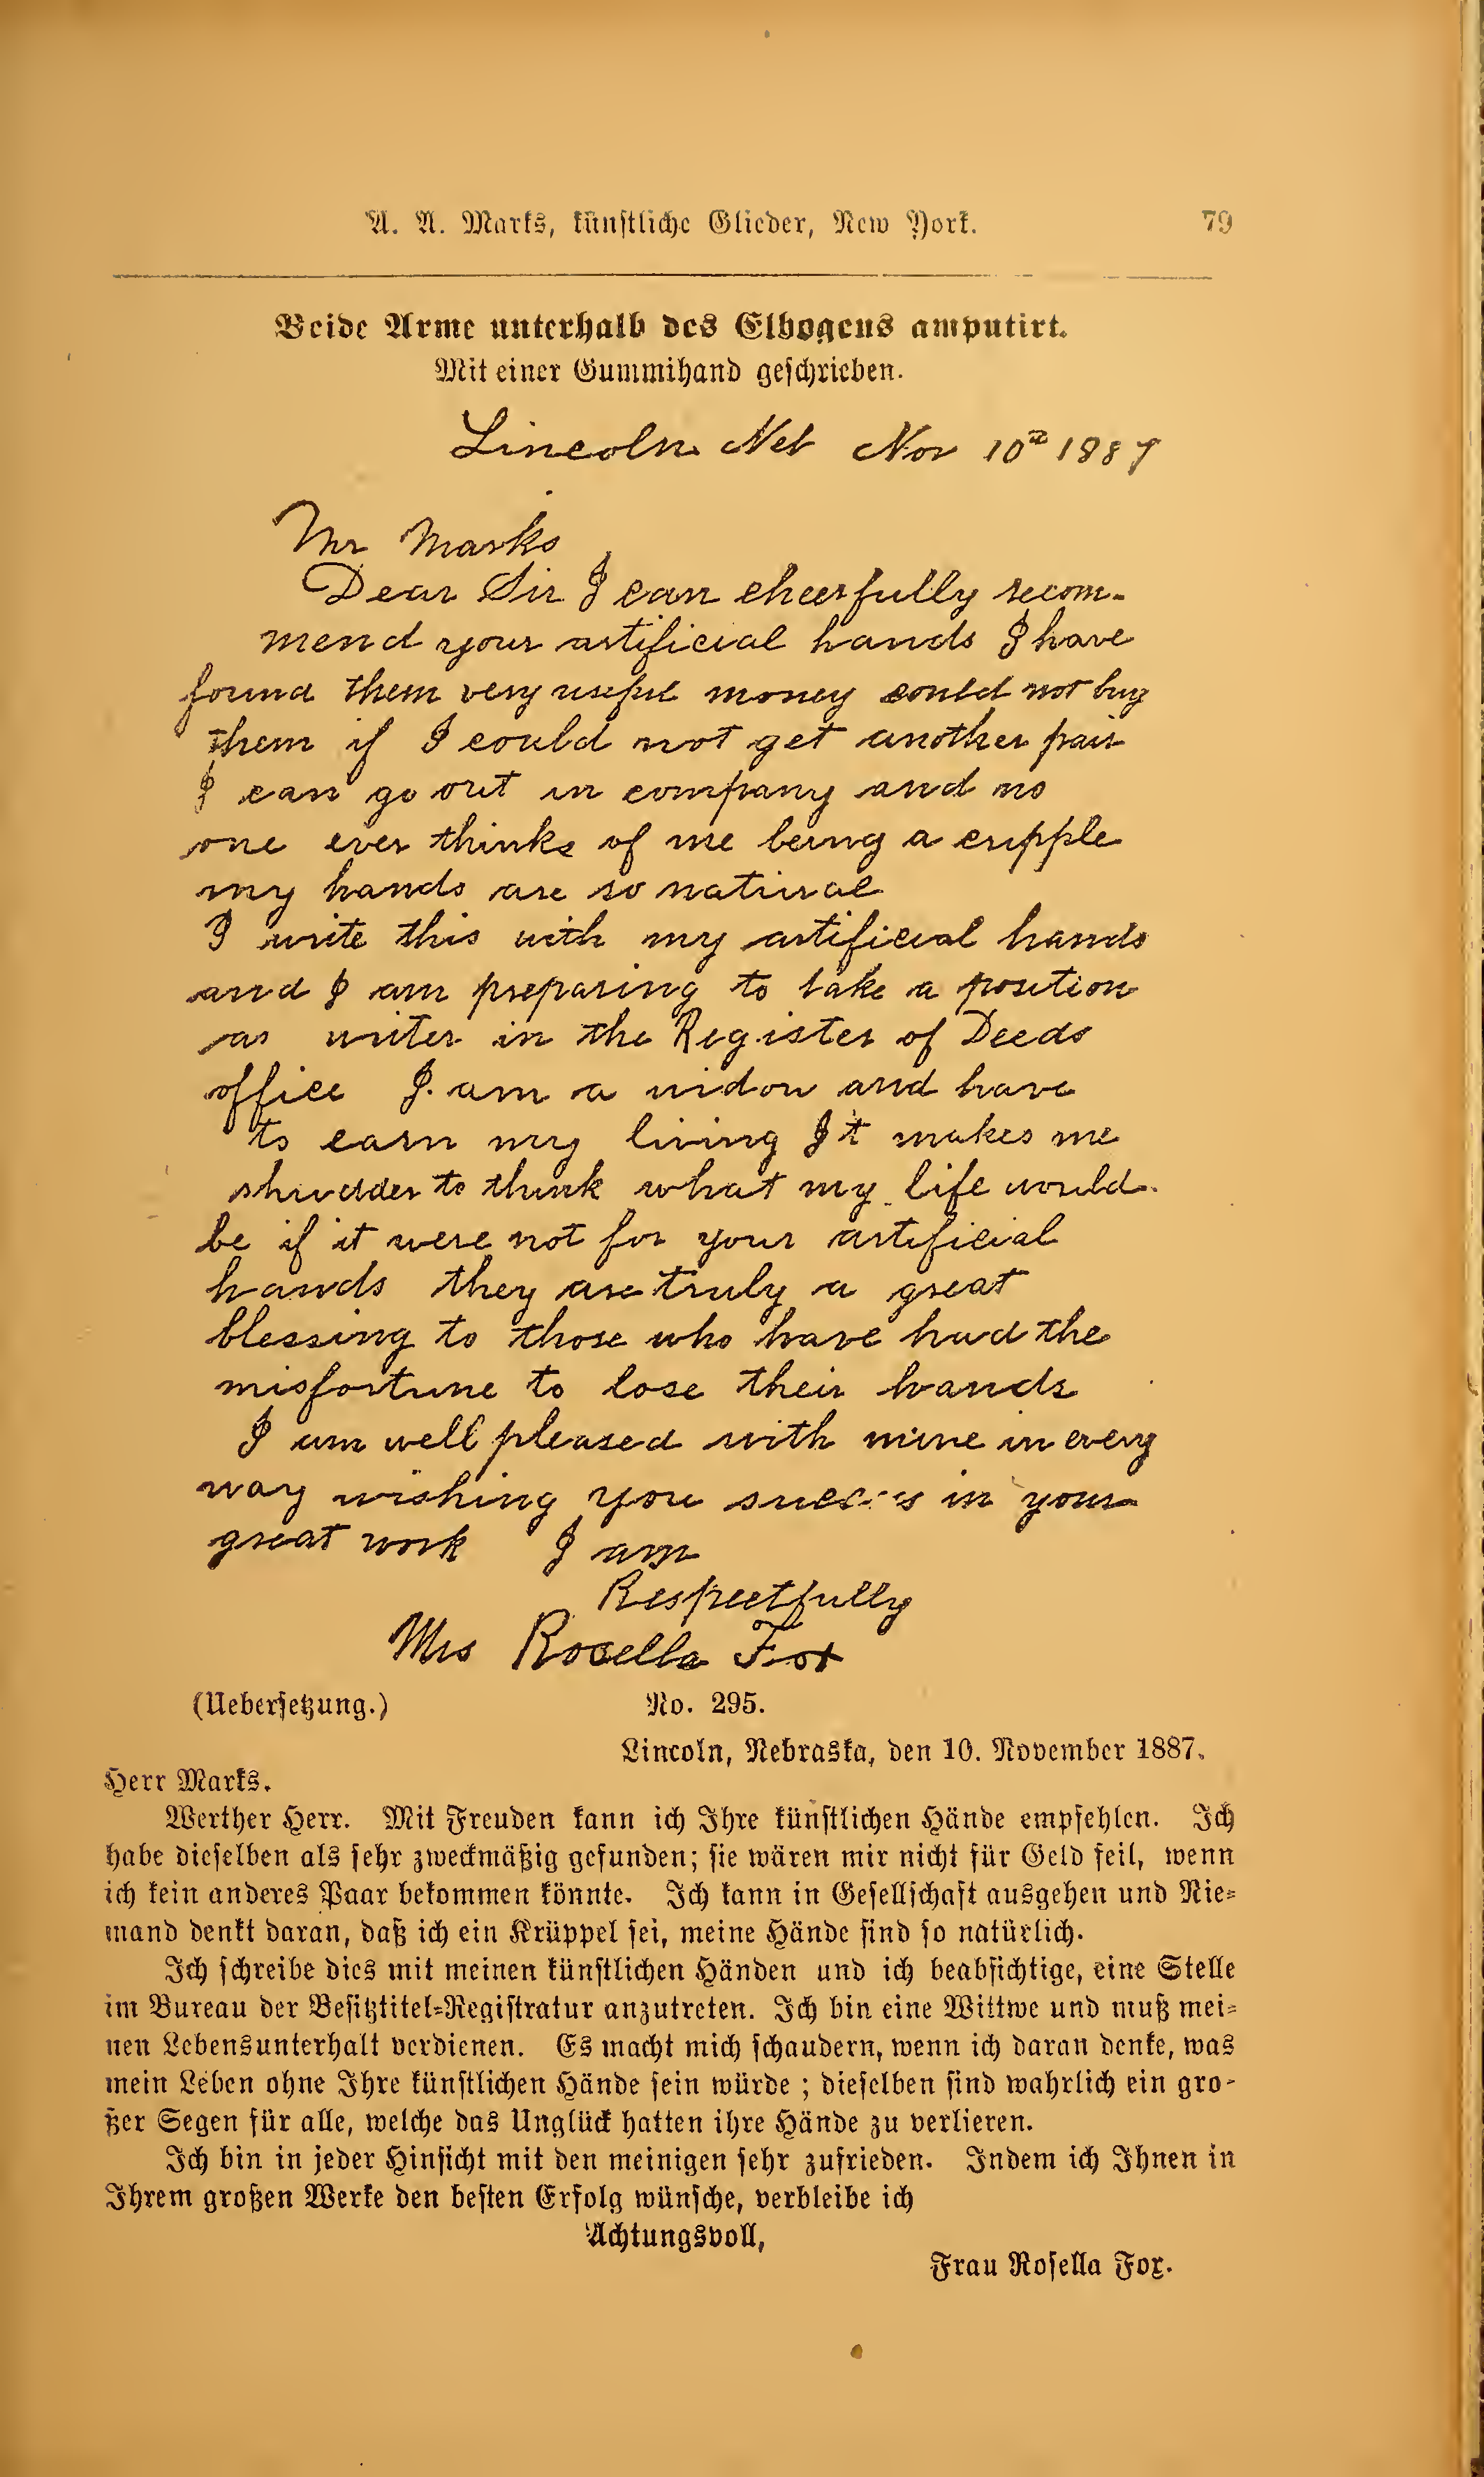 A. A. Marks, künstliche Glieder, New York. 79
Beide Arme unterhalb des Elbogens amputirt.
Mit einer Gummihand geschrieben.
Lincoln Neb Nov 10th 1887
Mr Marks
Dear Sir I can cheerfully recom-
mend your artificial hands I have
found them very useful money could not buy
them if I could not get another pair
I can go out in company and no
one ever thinks of me being a cripple
my hands are so natural
I write this with my artificial hands
and I am preparing to take a position
as writer in the Register of Deeds
office I am a widow and have
to earn my living It makes me
shudder to think what my life would
be if it were not for your artificial
hands they are truly a great
blessing to those who have had the
misfortune to lose their hands
I am well pleased with mine in every
way wishing you success in your
great work I am
Respectfully
Mrs Rosella Fox
(Uebersetzung.) No. 295.
Lincoln, Nebraska, den 10. November 1887.
Herr Marks.
Werther Herr. Mit Freuden kann ich Ihre künstlichen Hände empfehlen. Ich
habe dieselben als sehr zweckmäßig gefunden; sie wären mir nicht für Geld feil, wenn
ich kein anderes Paar bekommen könnte. Ich kann in Gesellschaft ausgehen und Nie-
mand denkt daran, daß ich ein Krüppel sei, meine Hände sind so natürlich.
Ich schreibe dies mit meinen künstlichen Händen und ich beabsichtige, eine Stelle
im Bureau der Besitztitel-Registratur anzutreten. Ich bin eine Wittwe und muß mei-
nen Lebensunterhalt verdienen. Es macht mich schaudern, wenn ich daran denke, was
mein Leben ohne Ihre künstlichen Hände sein würde; dieselben sind wahrlich ein gro-
ßer Segen für alle, welche das Unglück hatten ihre Hände zu verlieren.
Ich bin in jeder Hinsicht mit den meinigen sehr zufrieden. Indem ich Ihnen in
Ihrem großen Werke den besten Erfolg wünsche, verbleibe ich
Achtungsvoll,
Frau Rosella Fox.